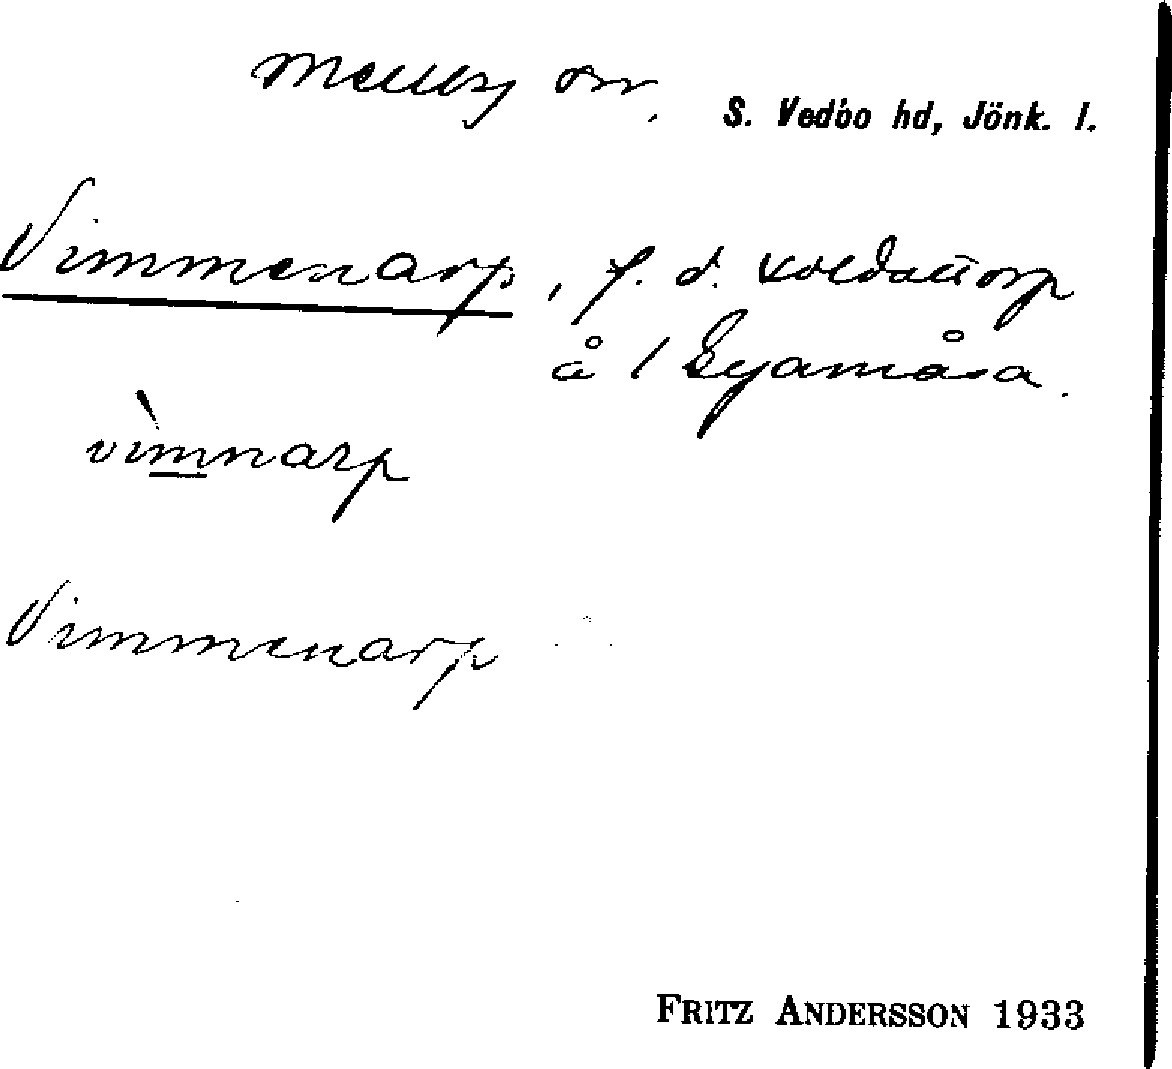 Mellby sn, S. Vedbo hd, Jönk. l.
Vimmenarp, f. d. soldattorp
å / Lyamåsa.
vìmnarp
Vimmenarp
FRITZ ANDERSSON 1933